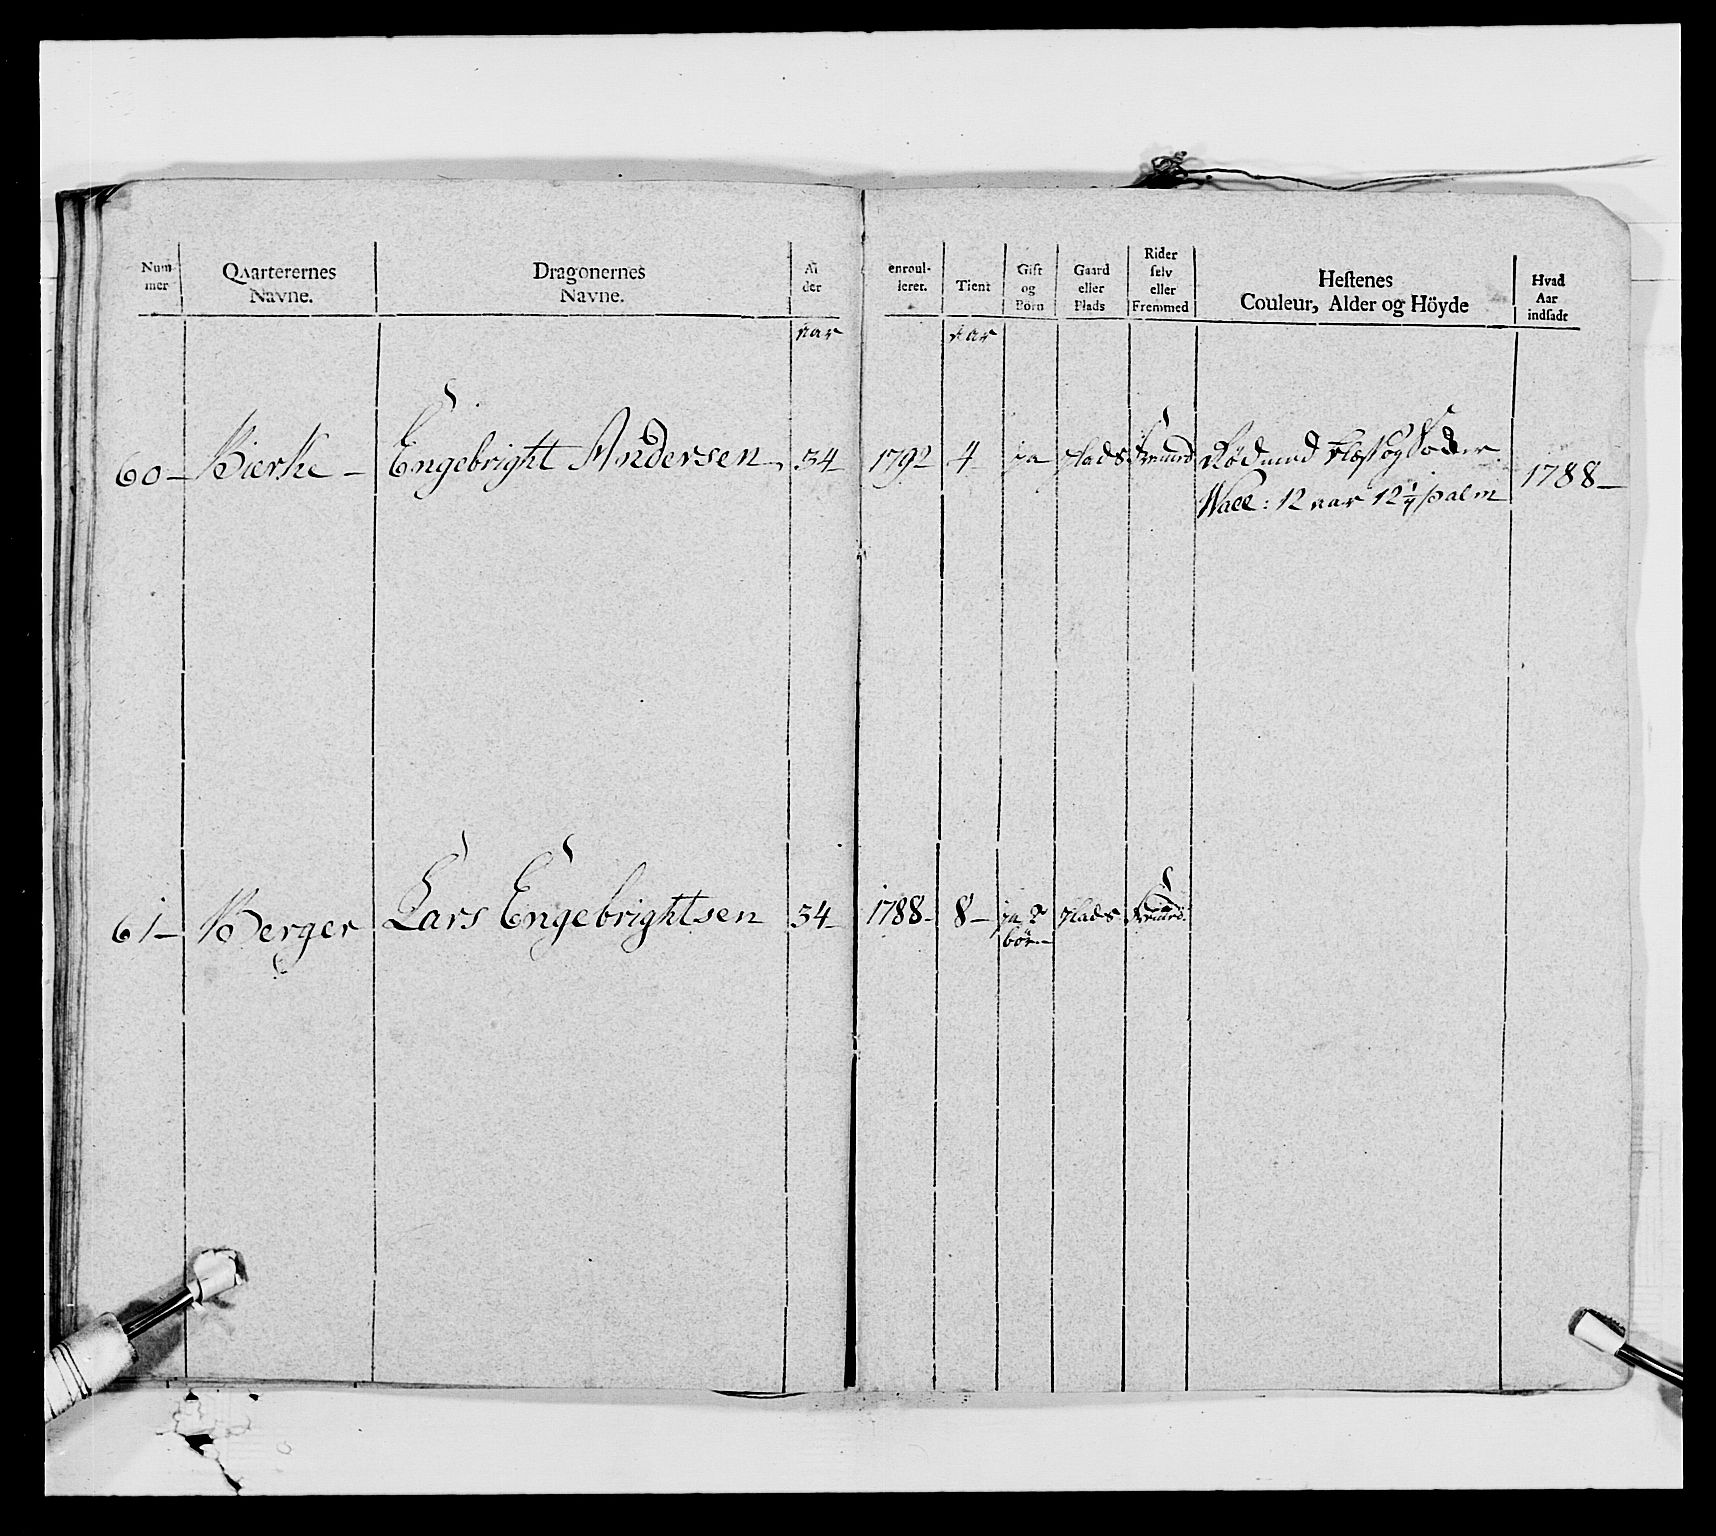 Num-
mer
Qvarterernes
Navne.
Dragonernes
Navne.
Al
der
enroul-
leret.
Tient
Gift
og
Börn
Gaard
eller
Plads
Rider
selv
eller
Fremmed
Hestenes
Couleur, Alder og Höyde
Hvad
Aar
indsadt
aar
aar
60 - Bierke - Engebright Andersen - 34 1792 4 ja plads Fremd Röd med og 1788 -
Wall: 12 aar 12 1/4 palm
61 - Berger Lars Engebrightsen 34 - 1788 - 8 - ja 2 plads Fremd
börn